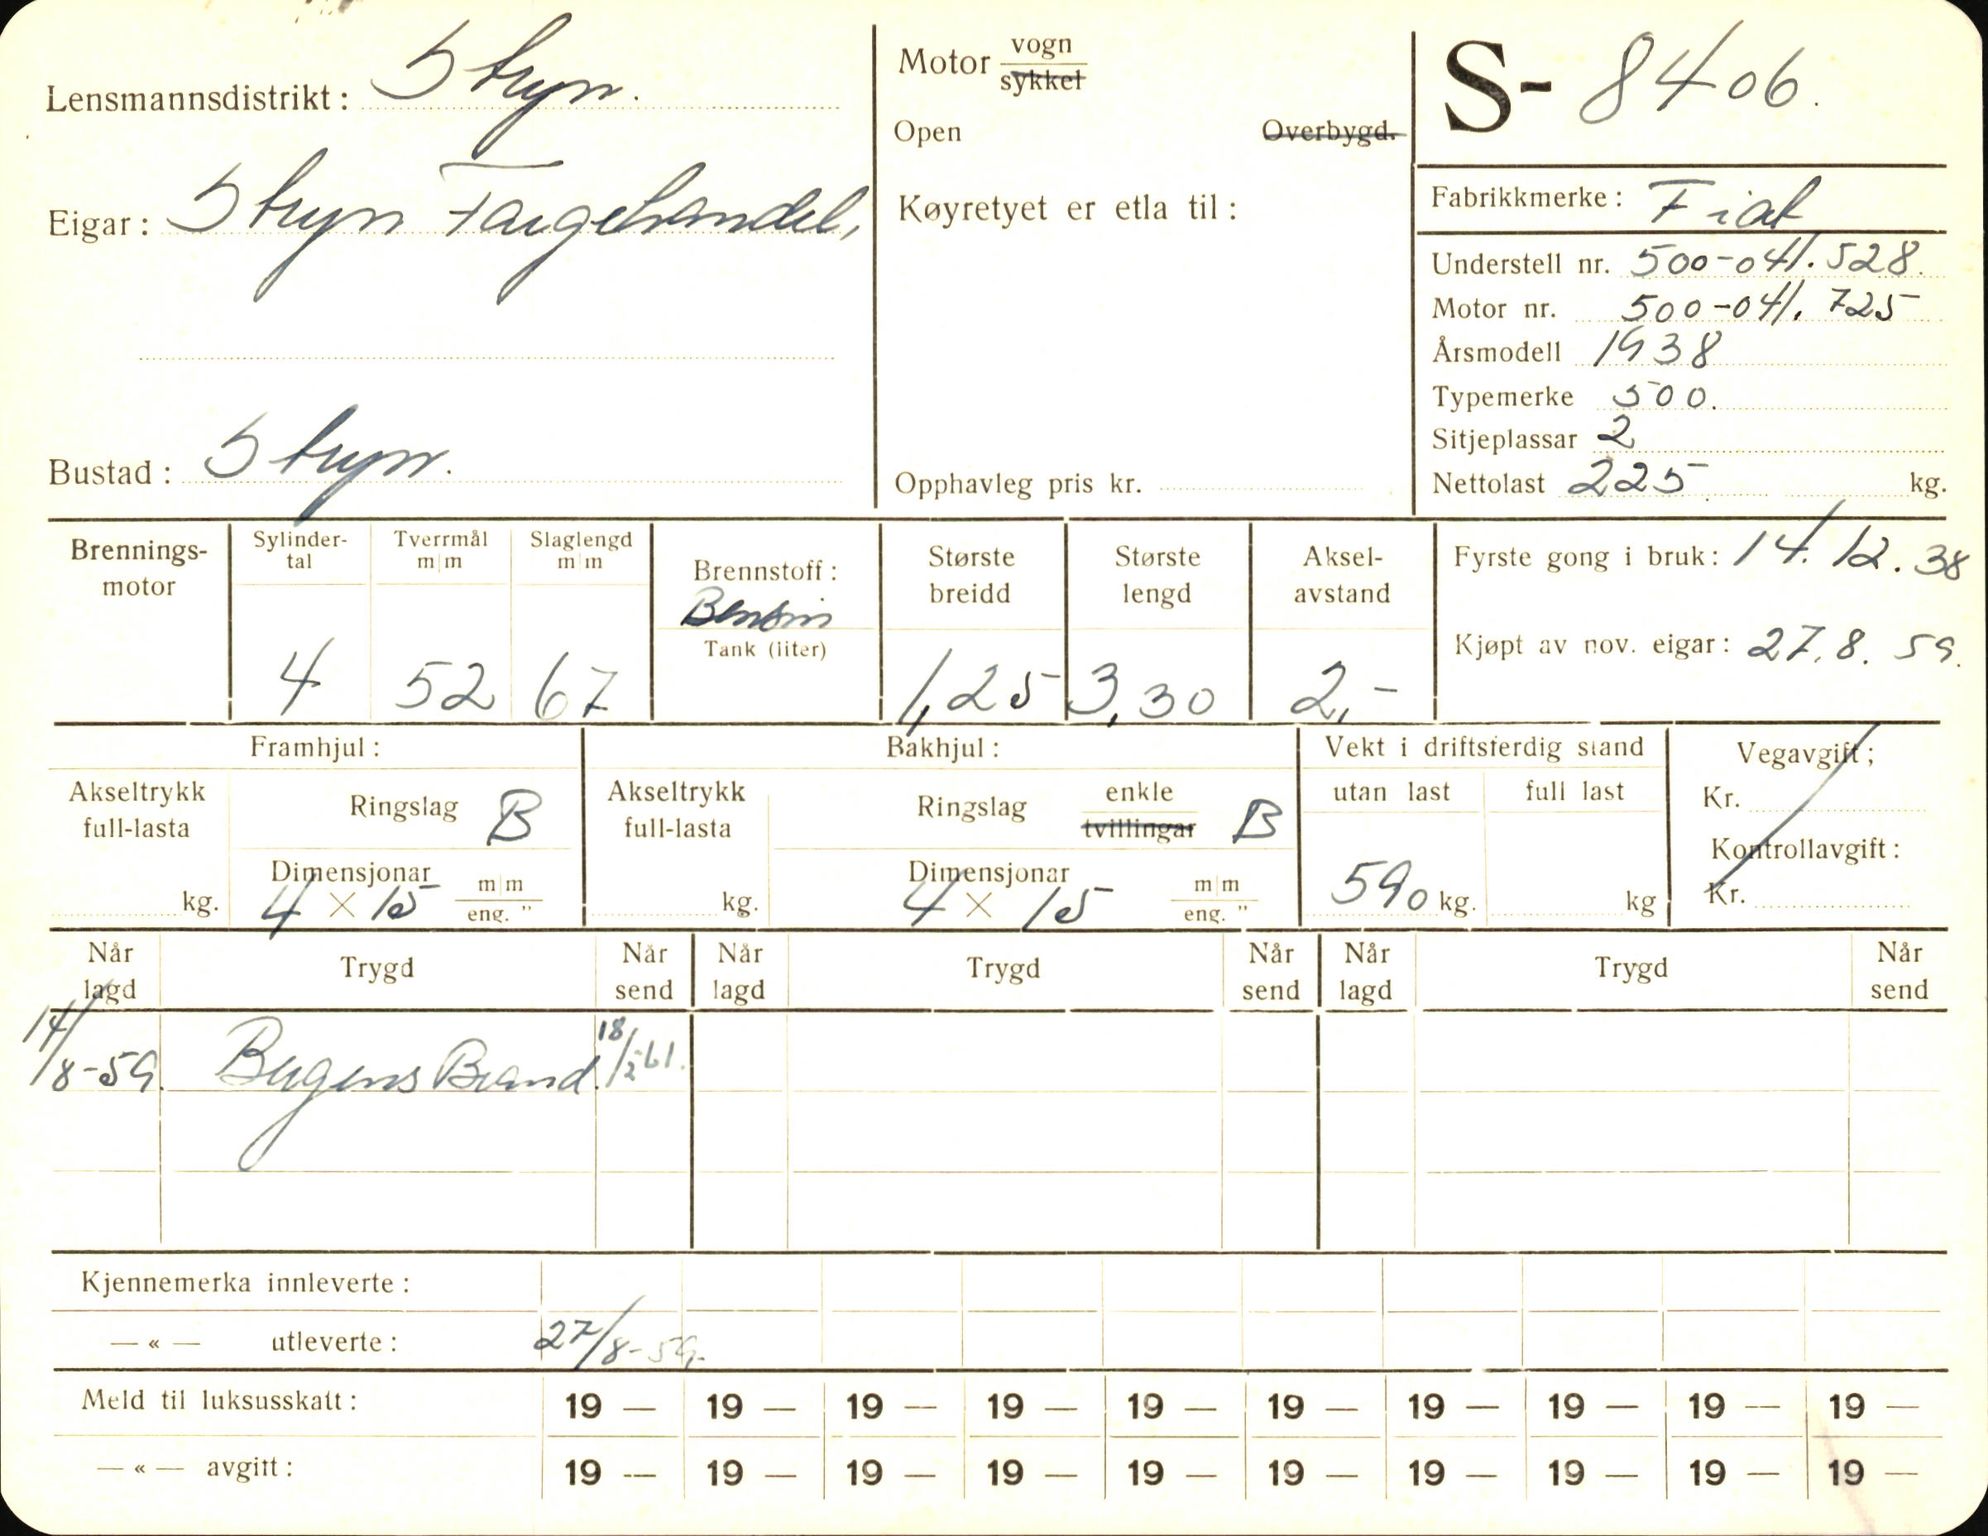 Lensmannsdistrikt: Stryn.
Eigar: Stryn Fargehandel,
Bustad: Stryn.
Motor vogn
sykkel
Open Overbygd.
Køyretyet er etla til:
Opphavleg pris kr.
S- 8406.
Fabrikkmerke: Fiat
Understell nr. 500-041.528.
Motor nr. 500-041.725
Årsmodell 1938
Typemerke 500.
Sitjeplassar 2
Nettolast 225 kg.
Brennings-
motor
Sylinder-
tal
4
Tverrmål
m|m
52
Slaglengd
m|m
67
Brennstoff:
Bensin
Tank (liter)
Største
breidd
1,25
Største
lengd
3,30
Aksel-
avstand
2,-
Fyrste gong i bruk: 14.12.38
Kjøpt av nov. eigar: 27.8.59.
Framhjul:
Akseltrykk
full-lasta
kg.
Ringslag B
Dimensjonar
4 × 15 m|m
eng. "
Bakhjul:
Akseltrykk
full-lasta
kg.
Ringslag enkle
tvillingar B
Dimensjonar
4 × 15 m|m
eng. "
Vekt i driftsferdig stand
utan last full last
590 kg. kg
Vegavgift;
Kr.
Kontrollavgift:
Kr.
Når
lagd
Trygd
Når
send
Når
lagd
Trygd
Når
send
Når
lagd
Trygd
Når
send
14/8-59. Brand. 18/2-61.
Kjennemerka innleverte:
— « — utleverte: 27/8-59.
Meld til luksusskatt: 19 — 19 — 19 — 19 — 19 — 19 — 19 — 19 — 19 — 19 —
— « — avgitt: 19 — 19 — 19 — 19 — 19 — 19 — 19 — 19 — 19 — 19 —